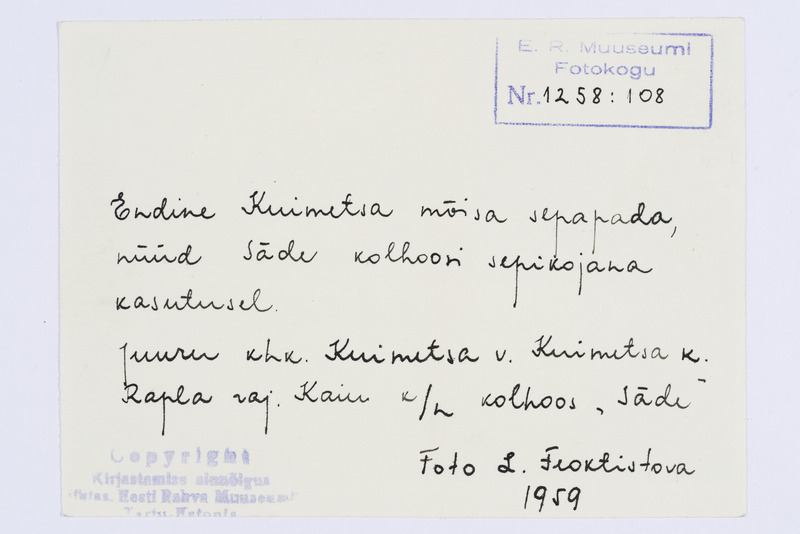 E. R. Muuseumi
Fotokogu
Nr. 1258:108
Endine Kuimetsa mõisa sepapada,
nüüd Säde kolhoosi sepikojana
kasutusel.
Juuru khk. Kuimetsa v. Kuimetsa k.
Rapla raj. Kaiu k/n kolhoos „Säde"
Foto L. Feoktistova
1959
Copyright
Kirjastamise ainuõigus
Eesti Rahva Muuseumi
Tartu-Estonia